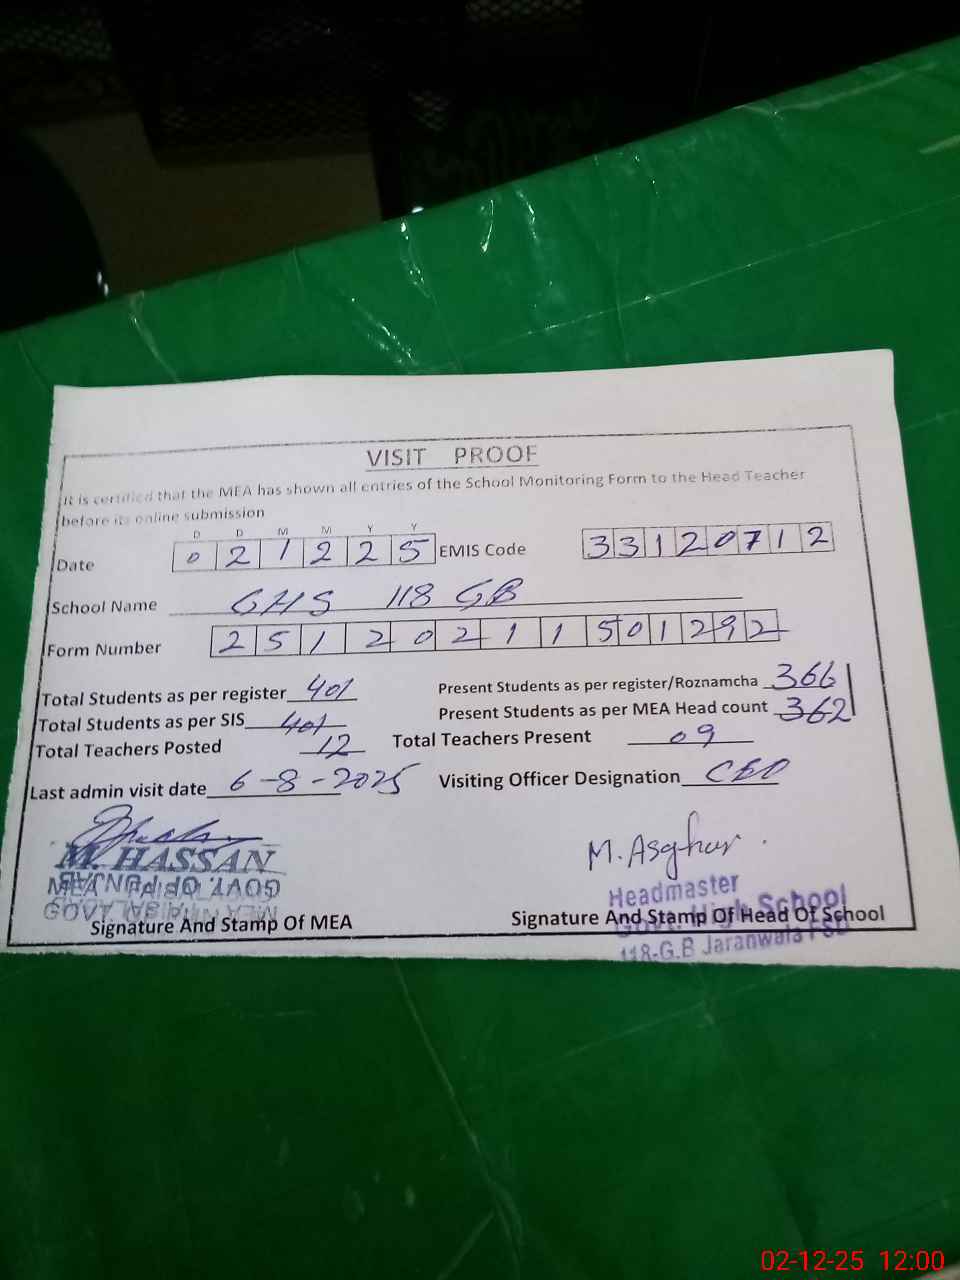 VISIT PROOF
It is certified that the MEA has shown all entries of the School Monitoring Form to the Head Teacher
before its online submission
D D M M Y Y
Date 0 2 1 2 2 5 EMIS Code 3 3 1 2 0 7 1 2
School Name GHS 118 GB
Form Number 2 5 1 2 0 2 1 1 5 0 1 2 9 2
Total Students as per register 401 Present Students as per register/Roznamcha 366
Total Students as per SIS 401 Present Students as per MEA Head count 362
Total Teachers Posted 12 Total Teachers Present 09
Last admin visit date 6-8-2025 Visiting Officer Designation CEO
M. HASSAN
M. Asghar
Headmaster
Govt. High School
118-G.B Jaranwala FSD
Signature And Stamp Of MEA Signature And Stamp Of Head Of School
02-12-25 12:00